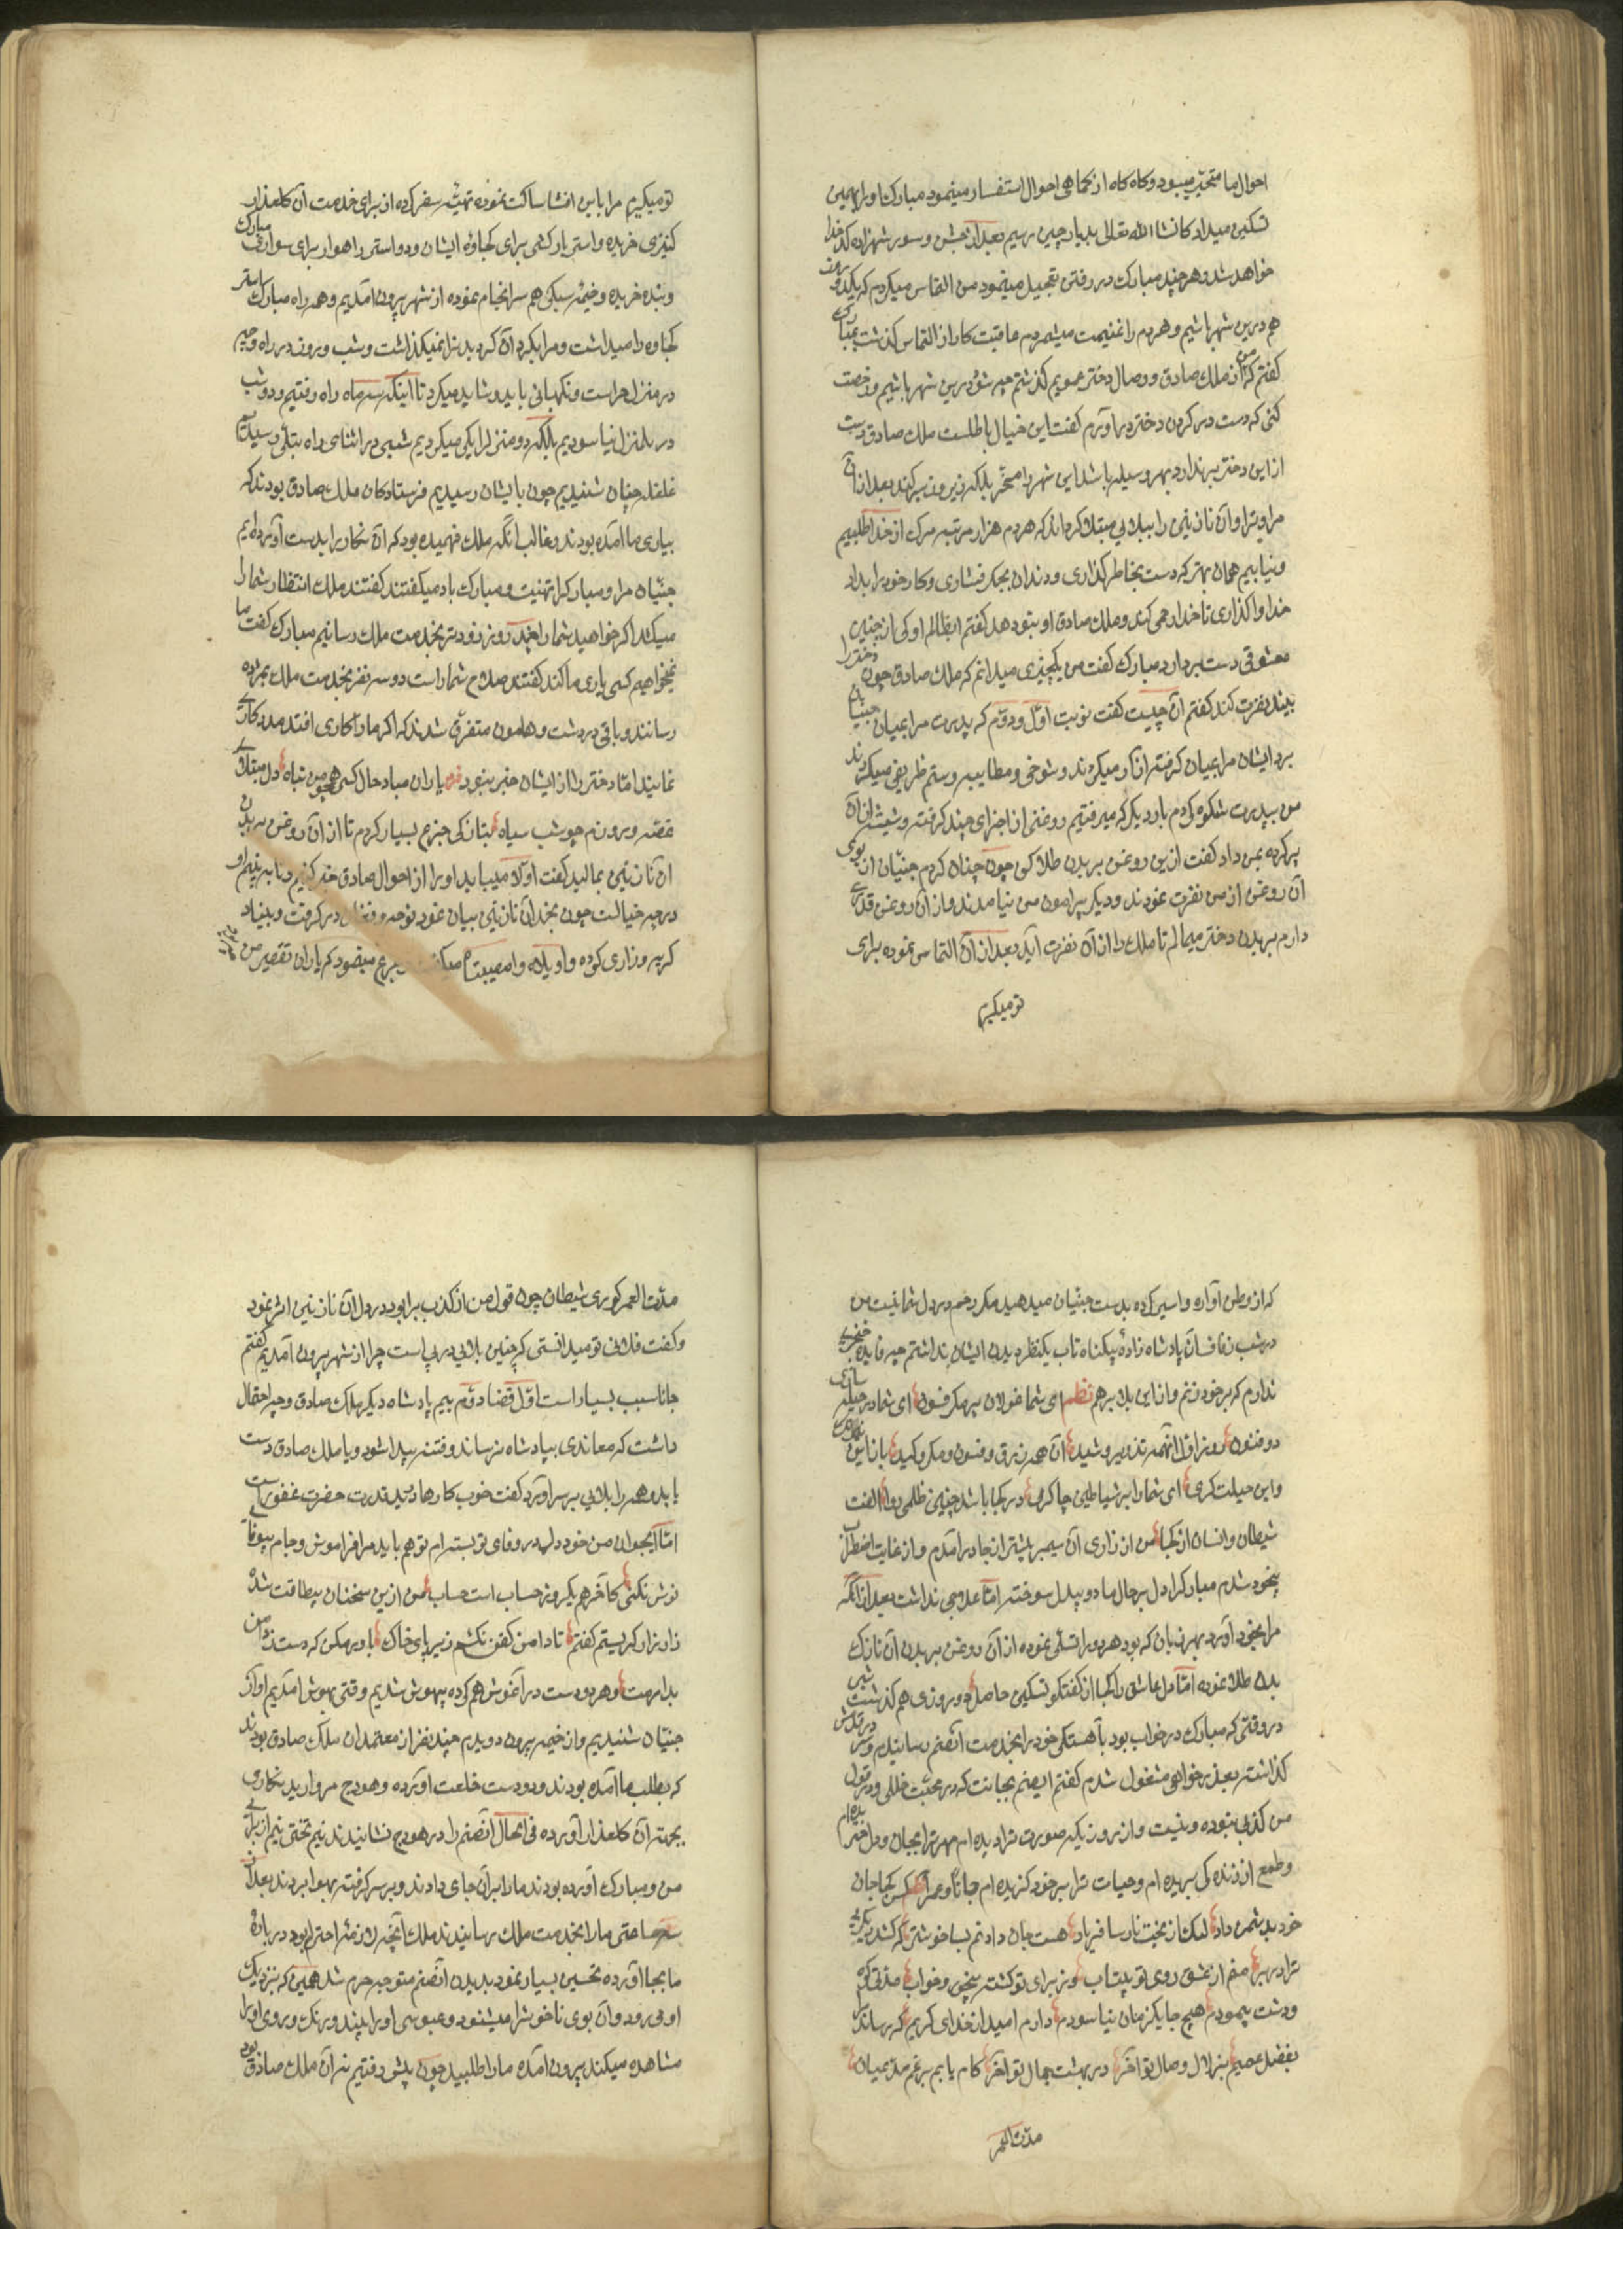 احوال ما متحیر میبود و کاه کاه از کماهی احوال استفسار مینمود مبارک اورا بهمین
تسکین میداد که انشا الله تعالی بدیار چین رسیم بعد از جشن و سور شهزاده کدخدا
خواهد شد و هر چند مبارک در رفتن تعجیل مینمود من التماس میکردم که یکدو روز
هم درین شهر باشیم و هر دم را غنیمت میشمردم عاقبت کار از التماس کذشت بمبارک
کفتم که من از ملک صادق و وصال دختر عمویم کذشتم چه شود درین شهر باشیم و رخصت
کنی که دست در کردن دختر در آورم کفت این خیال باطلست ملک صادق دست
از این دختر برندارد و بهر وسیله باشد این شهر را مسخر بلکه زیر و زبر کند بعد از آن
مرا و ترا و آن نازنین را ببلایی مبتلا کرداند که هر دم هزار مرتبه مرک از خدا طلبیم
و نیابیم همان بهتر که دست بخاطر کذاری و دندان بجکر فشاری و کار خود را بداد
خدا واکذاری تا خدا رحمی کند و ملک صادق او بتو دهد کفتم ایظالم او کی از چنین
معشوقی دست بردارد مبارک کفت من یکچیزی میدانم که ملک صادق چون دختر را
بیند نفرت کند کفتم آن چیست کفت نوبت اول و دوم که پدرت مرا بمیان جنیان
برد ایشان مرا بمیان کرفته آزار میکردند و شوخی و مطایبه و ستم ظریفی میکردند
من بپدرت شکوه کردم بار دیکر که میرفتیم روغنی از اجزای چند کرفته و شیشه از آن
پر کرده بمن داد کفت ازین روغن بر بدن طلا کن چون چنان کردم جنیان از بوی
آن روغن از من نفرت نمودند و دیکر پیرامون من نیامدند و از آن روغن قدری
دارم بر بدن دختر میمالم تا ملک را از آن نفرت آید بعد از آن التماس نموده برای
تو میکیرم
تو میکیرم مرا باین افشا ساکت نموده تهیهٔ سفر کرده از برای خدمت آن کلعذار
کنیزی خریده و استر بارکشی برای کجاوهٔ ایشان و دو استر راهوار برای سواری مبارک
و بنده خریده و خیمهٔ سبکی هم سرانجام نموده از شهر بیرون آمدیم و همه راه مبارک استر
کجاوه را میداشت و مرا بکرد آن کردیدن نمیکذاشت و شب و روز در راه و چه
در منزل حراست و نکهبانی باید و شاید میکرد تا اینکه سه ماه راه رفتیم و دو شب
در یک منزل نیاسودیم بلکه دو منزل را یکی میکردیم شبی در اثنای راه بتلی رسیدیم
غلغله جنیان شنیدیم چون بایشان رسیدیم فرستادکان ملک صادق بودند که
بیاری ما آمده بودند و غالب آنکه ملک فهمیده بود که آن نکار را بدست آورده ایم
جنیان مرا و مبارک را تهنیت و مبارک باد میکفتند کفتند ملک انتظار شما را
میکشد اکر خواهید شما را چند روز زودتر بخدمت ملک رسانیم مبارک کفت ما
نمیخواهیم کسی یاری ما کند کفتند صلاح شما راست دو سه نفر بخدمت ملک مژده
رسانند و باقی در دشت و هامون متفرق شدند که اکر ما را کاری افتد مدد کاری
نمایند اما دختر را از ایشان خبر نبود فرد یاران مباد حال کسی همچو من تباه دل مبتلای
غصه و روزم چو شب سیاه بتازکی جزع بسیار کردم تا از آن روغن بر بدن
آن نازنین بمالید کفت اولا میباید او را از احوال صادق خبر کنیم و تا ببینیم او
در چه خیالست چون بخدا آن نازنین بیان نمود نوحه و فغان در کرفت و بنیاد
کریه و زاری کرده و اویلاه و امصیبتاه میکفت جزع مینمود که یاران تقصیر من چیست
که از وطن آواره و اسیر کرده بدست جنیان میدهید مکر رحم در دل شما نیست من
در شب زفاف از آن پادشاه زادهٔ بیکناه تاب یکنظر دیدن ایشان نداشتم چه فایده خنجری
ندارم که بر خود زنم و از این بلا برهم نظم ای شما غولان بر مکر و فسون ای شما در حیله سازی
ذو فنون روز اول آنهمه تذویر و شید آن همه زرق و فسون و مکر و کید باز این
و این حیلت کری ای شما را بر شیاطین چاکری در کجا باشد چنین ظلمی روا الفت
شیطان و انسان از کجا من از زاری آن سیمبر بیشتر از جا در آمدم و از غایت اضطراب
بیخود شدم مبارک را دل بر حال ما دو بیدل سوخته اما علاجی نداشت بعد از آنکه
مرا بخود آورد بهر زبان که بود هر دو را تسلی نموده از آن روغن بر بدن آن نازک
بدن طلا نموده اما دل عاشق را کجا از کفتکو تسکین حاصل دو روزی هم کذشت شبی
در وقتی که مبارک در خواب بود بآهستکی خود را بخدمت آنصنم رسانیدم و سر در قدمش
کذاشته بعذر خواهی مشغول شدم کفتم ایصنم بجانت که در محبت خللی و در قول
من کذبی نبوده و نیست و از روزیکه صورت ترا دیده ام مهر ترا بجان و دل خریده ام
و طمع از زندکی بریده ام و حیات ترا بر خود کزیده ام جانا و عمرا نظم کس کجا جان
خود بدشمن داد لیک از بخت نارسا فریاد هست جان دادنم بسا خوشتر که کشد دیکری
ترا در بر منم از عشق روی تو بیتاب روز برای تو کشته بیخور و خواب مدتی کوه
و دشت پیمودم هیچ جا یکزمان نیاسودم دارم امید از خدای کریم که رساند
بفضل عمیم بزلال وصال تو آخر در بهشت جمال تو آخر کام یابم برغم مدعیان
مدت العمر
مدت العمر کوری شیطان چون قول من از کذب برا بود در دل آن نازنین اثر نمود
و کفت فلانی تو میدانستی که چنین بلایی در پی است چرا از شهر بیرون آمدیم کفتم
جانا سبب بسیار است اول قضا دوم بیم پادشاه دیکر ملک صادق و چه احتمال
داشت که معاندی بپادشاه نرساند و فتنه پیدا شود و یا ملک صادق دست
یابد و همه را بلایی بر سر آورد کفت خوب کارها در ید قدرت حضرت غفور است
اما ایجوان من خود دل بر وفای تو بسته ام تو هم باید مرا فراموش و جام بیوفا
نوش نکنی کآخر هم یکروز حساب است حساب من ازین سخنان بیطاقت شده
زار زار کریستم کفتم تا دامن کفن نکشم زیر پای خاک باور مکن که دست ز دامن
بدارمت و هر دو دست در آغوش هم کرده بیهوش شدیم وقتی بهوش آمدیم آواز
جنیان شنیدیم و از خیمه بیرون دویدم چند نفر از معتمدان ملک صادق بودند
که بطلب ما آمده بودند و دو دست خلعت آورده و هودج مروارید نکاری
بجهت آن کلعذار آورده فی الحال آنصنم را در هودج نشانیدند نیم تختی نیز از برای
من و مبارک آورده بودند ما را بر آن جای دادند و بر سر کرفته بهوا بردند بعد از
سه ساعتی ما را بخدمت ملک رسانیدند ملک آنچه لازمهٔ احترام بود در بارهٔ
ما بجا آورده تحسین بسیار نمود بدیدن آنصنم متوجه حرم شد همین که نزدیک
او میرود آن بوی ناخوش را میشنود و عبوسی او را بیند و رنک و روی او را
مشاهده میکند بیرون آمده ما را طلبید چون پیش رفتیم نه آن ملک صادق بود